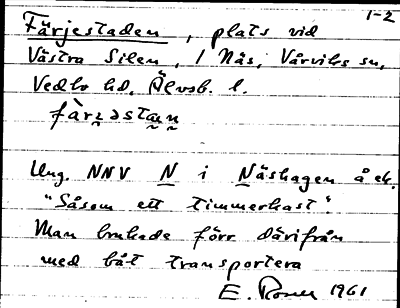 1-2
Färjestaden, plats vid
Västra Silen, / Näs, Vårviks sn,
Vedbo hd, Älvsb. l.
Ung. NNV N i Näshagen å ek.
"Såsom ett timmerkast".
Man brukade förr därifrån
med båt transportera
E. 1961